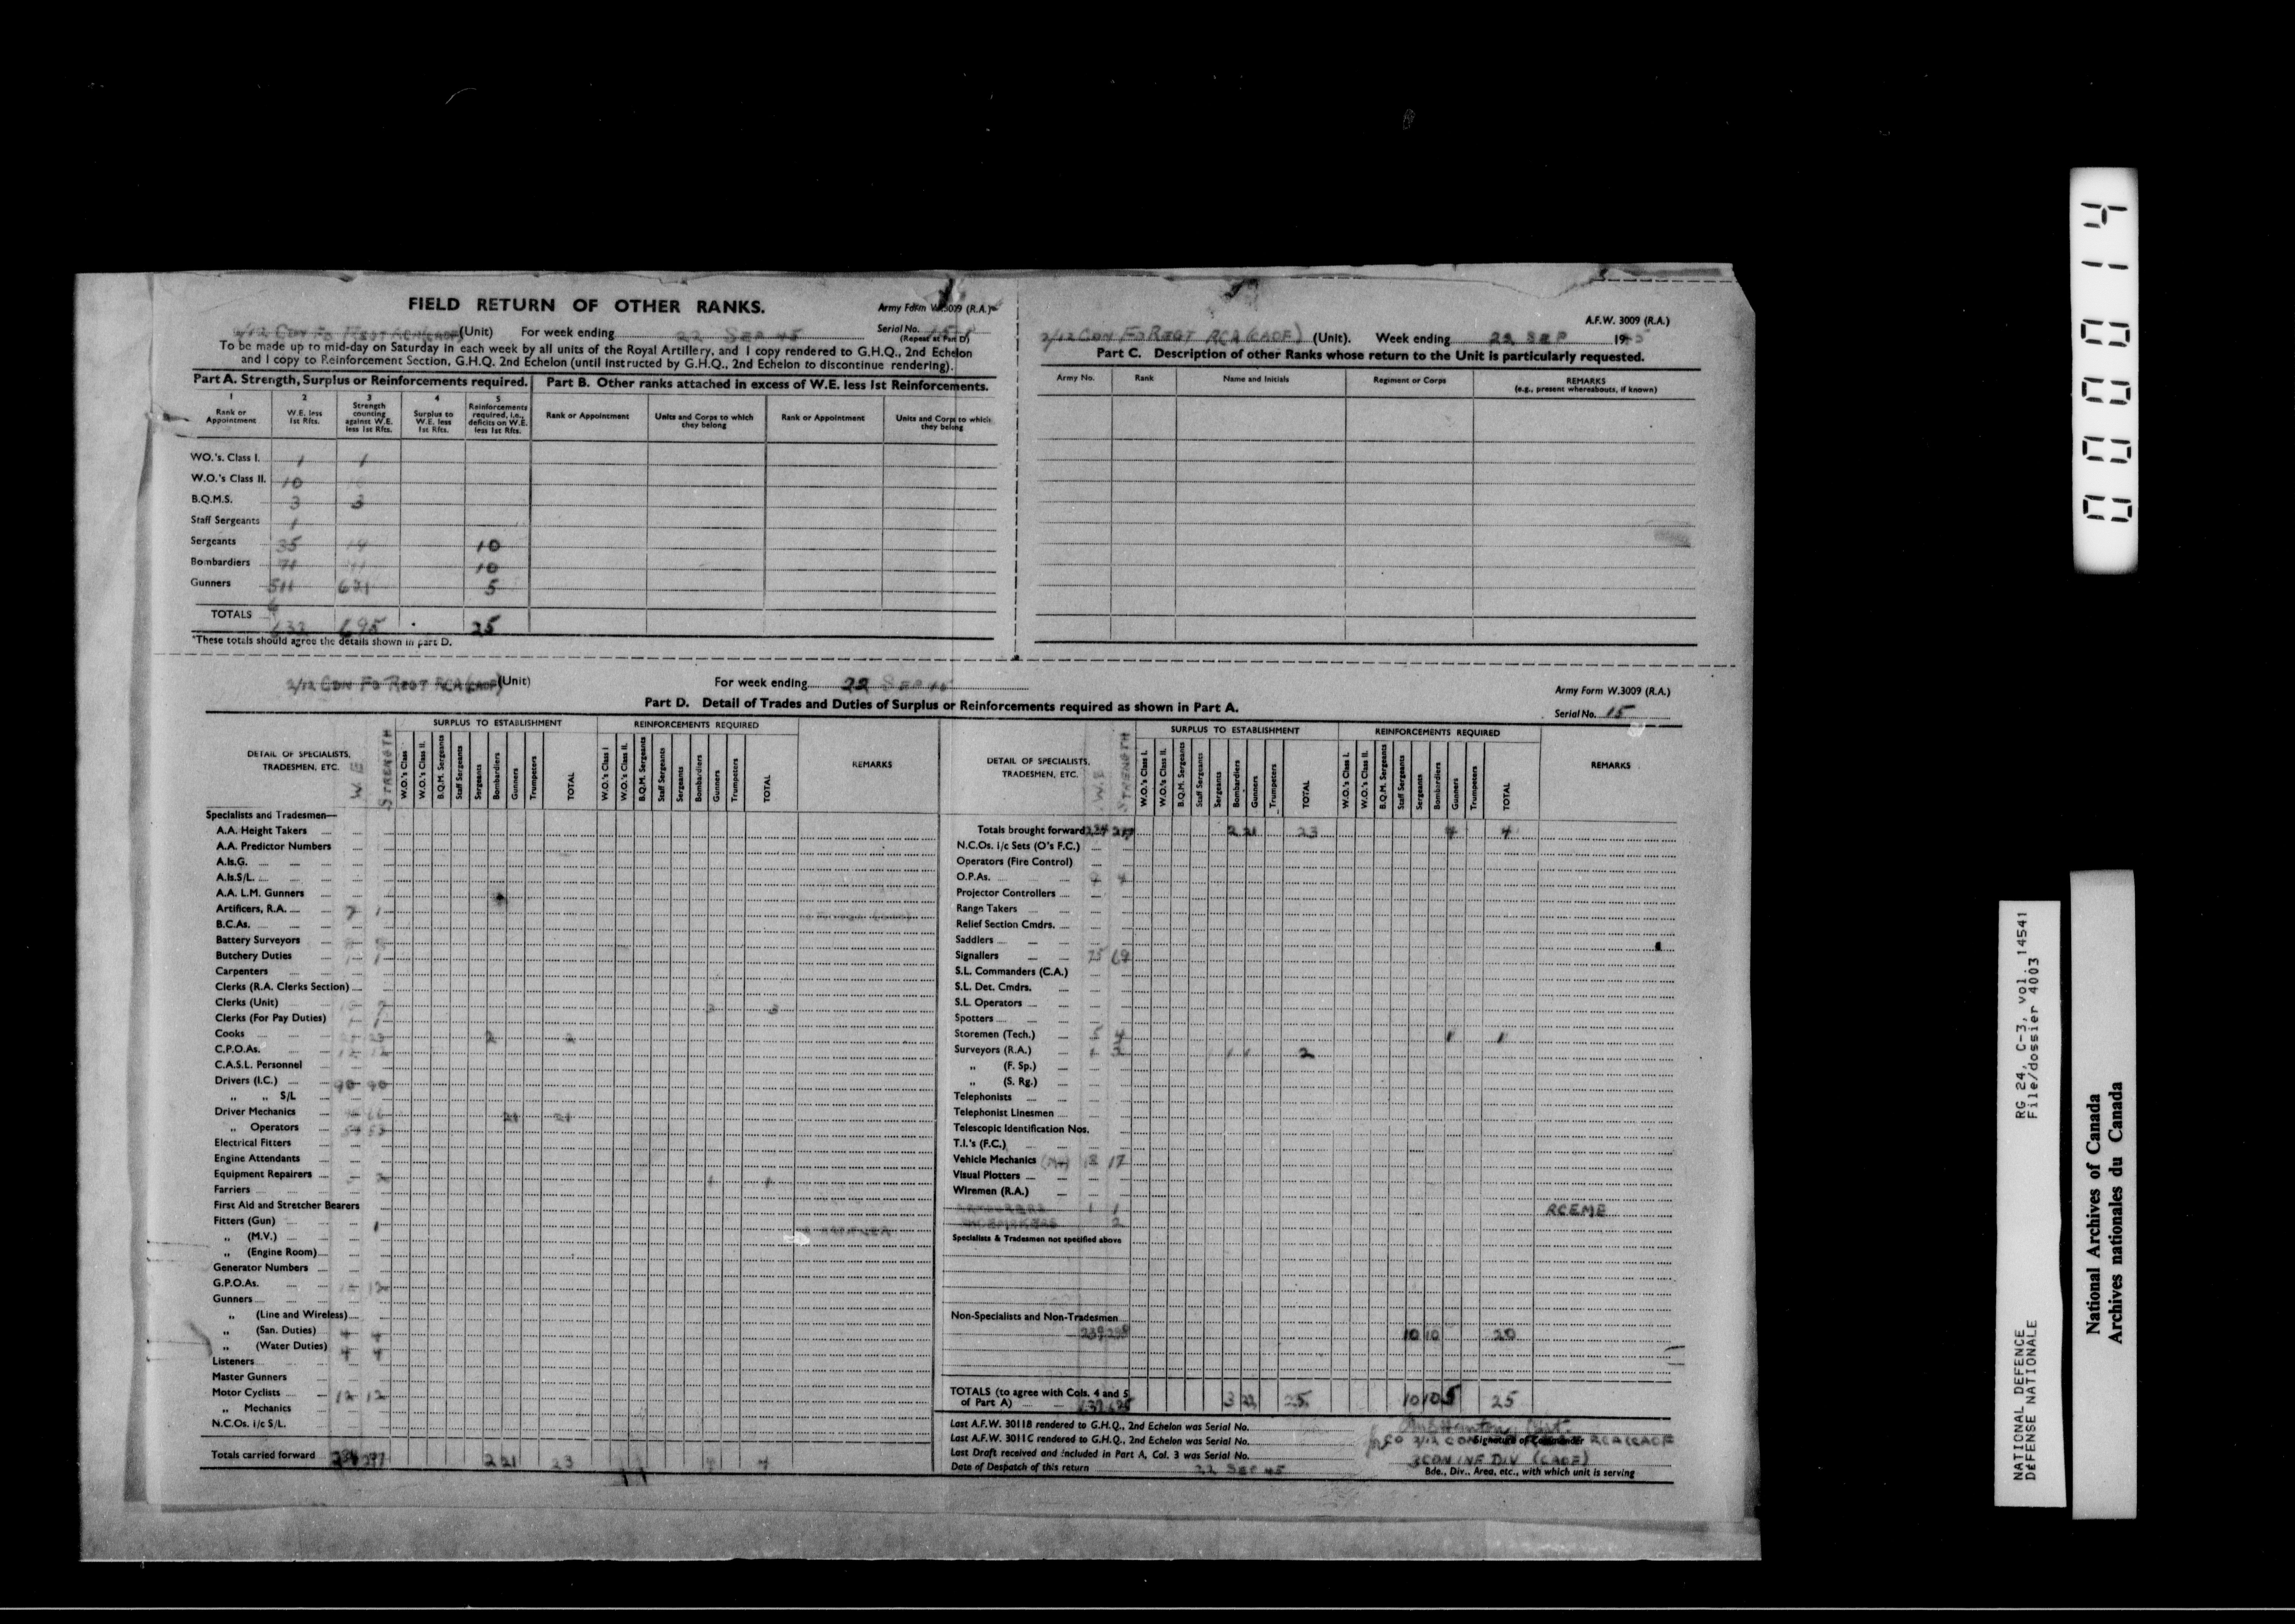 FIELD RETURN OF OTHER RANKS.
Army Form W.3009 (R.A.)
2/12 CDN FD REGT RCA (CAOF) (Unit) For week ending 22 SEP 45
Serial No. 15
(Repeat at Part D)
To be made up to mid-day on Saturday in each week by all units of the Royal Artillery, and 1 copy rendered to G.H.Q., 2nd Echelon
and 1 copy to Reinforcement Section, G.H.Q. 2nd Echelon (until instructed by G.H.Q., 2nd Echelon to discontinue rendering).
Part A. Strength, Surplus or Reinforcements required.
Part B. Other ranks attached in excess of W.E. less 1st Reinforcements.
1 2 3 4 5
Rank or Appointment
W.E. less 1st Rfts.
Strength counting against W.E. less 1st Rfts.
Surplus to W.E. less 1st Rfts.
Reinforcements required, i.e., deficits on W.E. less 1st Rfts.
Rank or Appointment
Units and Corps to which they belong
Rank or Appointment
Units and Corps to which they belong
WO.'s. Class I. 1 1
W.O.'s Class II. 10
B.Q.M.S. 3 3
Staff Sergeants 1
Sergeants 35 10
Bombardiers 71 10
Gunners 511 621 5
TOTALS 632 695 25
*These totals should agree the details shown in part D.
A.F.W. 3009 (R.A.)
2/12 CDN FD REGT RCA (CAOF) (Unit). Week ending 22 SEP 1945
Part C. Description of other Ranks whose return to the Unit is particularly requested.
Army No.
Rank
Name and Initials
Regiment or Corps
REMARKS
(e.g., present whereabouts, if known)
2/12 CDN FD REGT RCA (CAOF) (Unit) For week ending 22 SEP 45
Army Form W.3009 (R.A.)
Part D. Detail of Trades and Duties of Surplus or Reinforcements required as shown in Part A.
Serial No. 15
DETAIL OF SPECIALISTS, TRADESMEN, ETC.
W.E.
STRENGTH
SURPLUS TO ESTABLISHMENT
W.O.'s Class
W.O.'s Class II.
B.Q.M. Sergeants
Staff Sergeants
Sergeants
Bombardiers
Gunners
Trumpeters
TOTAL
REINFORCEMENTS REQUIRED
W.O.'s Class I
W.O.'s Class II.
B.Q.M. Sergeants
Staff Sergeants
Sergeants
Bombardiers
Gunners
Trumpeters
TOTAL
REMARKS
Specialists and Tradesmen—
A.A. Height Takers
A.A. Predictor Numbers
A.Is.G.
A.Is.S/L.
A.A. L.M. Gunners
Artificers, R.A. 7 1
B.C.As.
Battery Surveyors
Butchery Duties 1
Carpenters
Clerks (R.A. Clerks Section)
Clerks (Unit) 7 3 3
Clerks (For Pay Duties) 1
Cooks 23 2 2
C.P.O.As. 12 12
C.A.S.L. Personnel
Drivers (I.C.) 90 90
„ „ S/L
Driver Mechanics 21 21
„ Operators 54 53
Electrical Fitters
Engine Attendants
Equipment Repairers 2 1 1
Farriers
First Aid and Stretcher Bearers
Fitters (Gun) 1
„ (M.V.)
„ (Engine Room)
Generator Numbers
G.P.O.As. 12
Gunners
„ (Line and Wireless)
„ (San. Duties) 4 4
„ (Water Duties) 4 4
Listeners
Master Gunners
Motor Cyclists 12 12
„ Mechanics
N.C.Os. i/c S/L.
Totals carried forward 297 2 21 23 4
DETAIL OF SPECIALISTS, TRADESMEN, ETC.
W.E.
STRENGTH
SURPLUS TO ESTABLISHMENT
W.O.'s Class I.
W.O.'s Class II.
B.Q.M. Sergeants
Staff Sergeants
Sergeants
Bombardiers
Gunners
Trumpeters
TOTAL
REINFORCEMENTS REQUIRED
W.O.'s Class I.
W.O.'s Class II.
B.Q.M. Sergeants
Staff Sergeants
Sergeants
Bombardiers
Gunners
Trumpeters
TOTAL
REMARKS
Totals brought forward 2 21 23 4 4
N.C.Os. i/c Sets (O's F.C.)
Operators (Fire Control)
O.P.As. 4
Projector Controllers
Range Takers
Relief Section Cmdrs.
Saddlers
Signallers 75 69
S.L. Commanders (C.A.)
S.L. Det. Cmdrs.
S.L. Operators
Spotters
Storemen (Tech.) 5 4 1 1
Surveyors (R.A.) 1 3 1 1 2
„ (F. Sp.)
„ (S. Rg.)
Telephonists
Telephonist Linesmen
Telescopic Identification Nos.
T.I.'s (F.C.)
Vehicle Mechanics 18 17
Visual Plotters
Wiremen (R.A.)
ARMOURERS 1 1 RCEME
SHOEMAKERS 2
Specialists & Tradesmen not specified above
Non-Specialists and Non-Tradesmen
239 298 10 10 20
TOTALS (to agree with Cols. 4 and 5 of Part A) 695 3 22 25 10 10 5 25
Last A.F.W. 3011B rendered to G.H.Q., 2nd Echelon was Serial No.
Last A.F.W. 3011C rendered to G.H.Q., 2nd Echelon was Serial No.
CO 2/12 CDN Signature of Commander RCA (CAOF
Last Draft received and included in Part A, Col. 3 was Serial No.
3 CDN INF DIV (CAOF)
Date of Despatch of this return 22 SEP 45
Bde., Div., Area, etc., with which unit is serving
000014
NATIONAL DEFENCE RG 24, C-3, vol. 14541
DÉFENSE NATIONALE File/dossier 4003
National Archives of Canada
Archives nationales du Canada